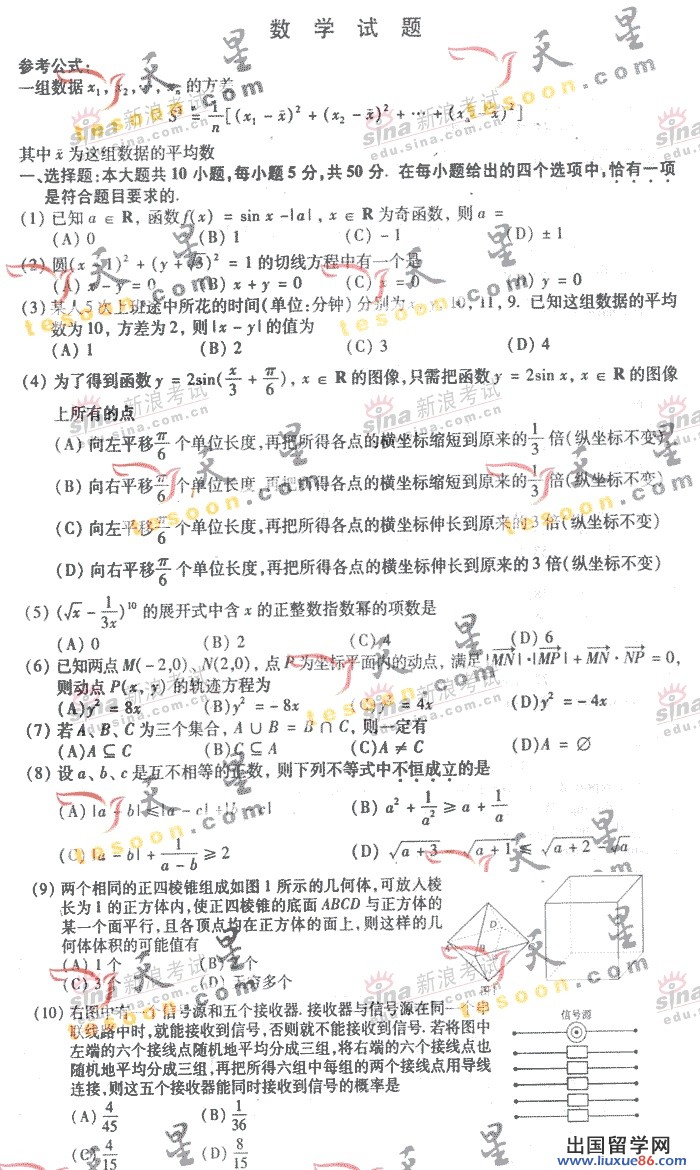 数 学 试 题
参考公式:
一组数据 x₁, x₂, …, xₙ 的方差
S² = 1/n[(x₁ - x̄)² + (x₂ - x̄)² + … + (xₙ - x̄)²]
其中 x̄ 为这组数据的平均数
一、选择题:本大题共 10 小题,每小题 5 分,共 50 分. 在每小题给出的四个选项中,恰有一项
是符合题目要求的.
(1) 已知 a ∈ R, 函数 f(x) = sin x -|a|, x ∈ R 为奇函数, 则 a =
(A) 0 (B) 1 (C) - 1 (D) ± 1
(2) 圆(x - 1)² + (y + √3)² = 1 的切线方程中有一个是
(A) x - y = 0 (B) x + y = 0 (C) x = 0 (D) y = 0
(3) 某人 5 次上班途中所花的时间(单位:分钟) 分别为 x, y, 10, 11, 9. 已知这组数据的平均
数为 10, 方差为 2, 则 |x - y| 的值为
(A) 1 (B) 2 (C) 3 (D) 4
(4) 为了得到函数 y = 2sin(x/3 + π/6), x ∈ R 的图像,只需把函数 y = 2sin x, x ∈ R 的图像
上所有的点
(A) 向左平移 π/6 个单位长度,再把所得各点的横坐标缩短到原来的 1/3 倍(纵坐标不变)
(B) 向右平移 π/6 个单位长度,再把所得各点的横坐标缩短到原来的 1/3 倍(纵坐标不变)
(C) 向左平移 π/6 个单位长度,再把所得各点的横坐标伸长到原来的 3 倍(纵坐标不变)
(D) 向右平移 π/6 个单位长度,再把所得各点的横坐标伸长到原来的 3 倍(纵坐标不变)
(5) (√x - 1/3x)¹⁰ 的展开式中含 x 的正整数指数幂的项数是
(A) 0 (B) 2 (C) 4 (D) 6
(6) 已知两点 M(-2,0)、N(2,0), 点 P 为坐标平面内的动点, 满足 |MN|·|MP| + MN·NP = 0,
则动点 P(x, y) 的轨迹方程为
(A) y² = 8x (B) y² = - 8x (C) y² = 4x (D) y² = - 4x
(7) 若 A、B、C 为三个集合, A ∪ B = B ∩ C, 则一定有
(A) A ⊆ C (B) C ⊆ A (C) A ≠ C (D) A = ∅
(8) 设 a、b、c 是互不相等的正数, 则下列不等式中不恒成立的是
(A) |a - b| ≤ |a - c| + |b - c| (B) a² + 1/a² ≥ a + 1/a
(C) |a - b| + 1/(a - b) ≥ 2 (D) √(a + 3) - √(a + 1) ≤ √(a + 2) - √a
(9) 两个相同的正四棱锥组成如图 1 所示的几何体,可放入棱
长为 1 的正方体内,使正四棱锥的底面 ABCD 与正方体的
某一个面平行,且各顶点均在正方体的面上,则这样的几
何体体积的可能值有
(A) 1 个 (B) 2 个
(C) 3 个 (D) 无穷多个
(10) 右图中有一个信号源和五个接收器. 接收器与信号源在同一个串
联线路中时,就能接收到信号,否则就不能接收到信号. 若将图中
左端的六个接线点随机地平均分成三组,将右端的六个接线点也
随机地平均分成三组,再把所得六组中每组的两个接线点用导线
连接,则这五个接收器能同时接收到信号的概率是
(A) 4/45 (B) 1/36
(C) 4/15 (D) 8/15
信号源
天星
tesoon.com
sina 新浪考试
edu.sina.com.cn
出国留学网
www.liuxue86.com